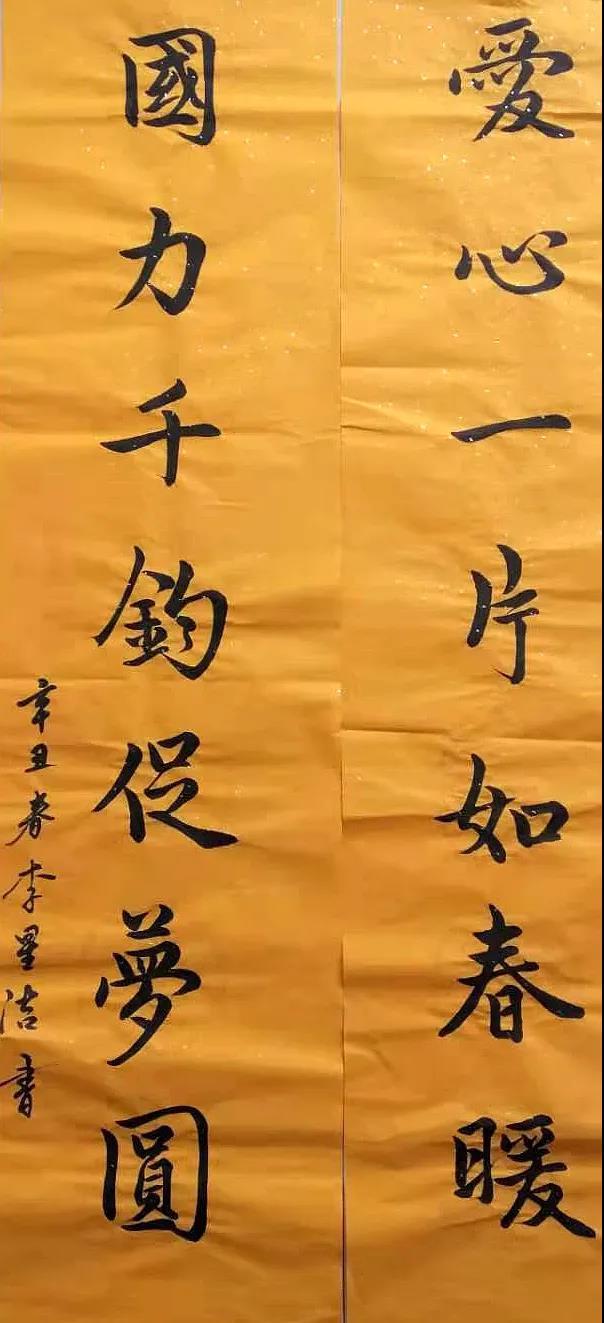 愛心一片如春暖
國力千鈞促夢圓
辛丑春李星洁書